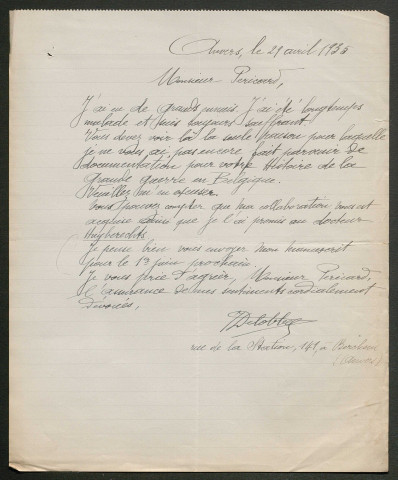 Anvers, le 29 avril 1935
Monsieur Péricard,
J'ai eu de grands ennuis. J'ai été longtemps
malade et suis toujours souffrant.
Vous devez voir là la seule raison pour laquelle
je ne vous ai, pas encore, fait parvenir de
documentation pour votre Histoire de la
Grande guerre en Belgique.
Veuillez m'en excuser.
Vous pouvez compter que ma collaboration vous est
acquise ainsi que je l'ai promis au docteur
Huyberechts.
Je pense bien vous envoyer mon manuscrit
pour le 15 juin prochain.
Je vous prie d'agréer, Monsieur Péricard,
l'assurance de mes sentiments cordialement
dévoués,
rue de la Station, 141, à Berchem
(Anvers)